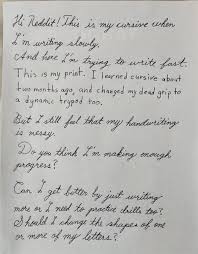 Hi Reddit! This is my cursive when
I'm writing slowly.
And here I'm trying to write fast.
This is my print. I learned cursive about
two months ago, and changed my dead grip to
a dynamic trypod too.
But I still feel that my handwriting
is messy.
Do you think I'm making enough
progress?
Can I get better by just writing
more or I need to practice drills too?
Should I change the shapes of one
or more of my letters?